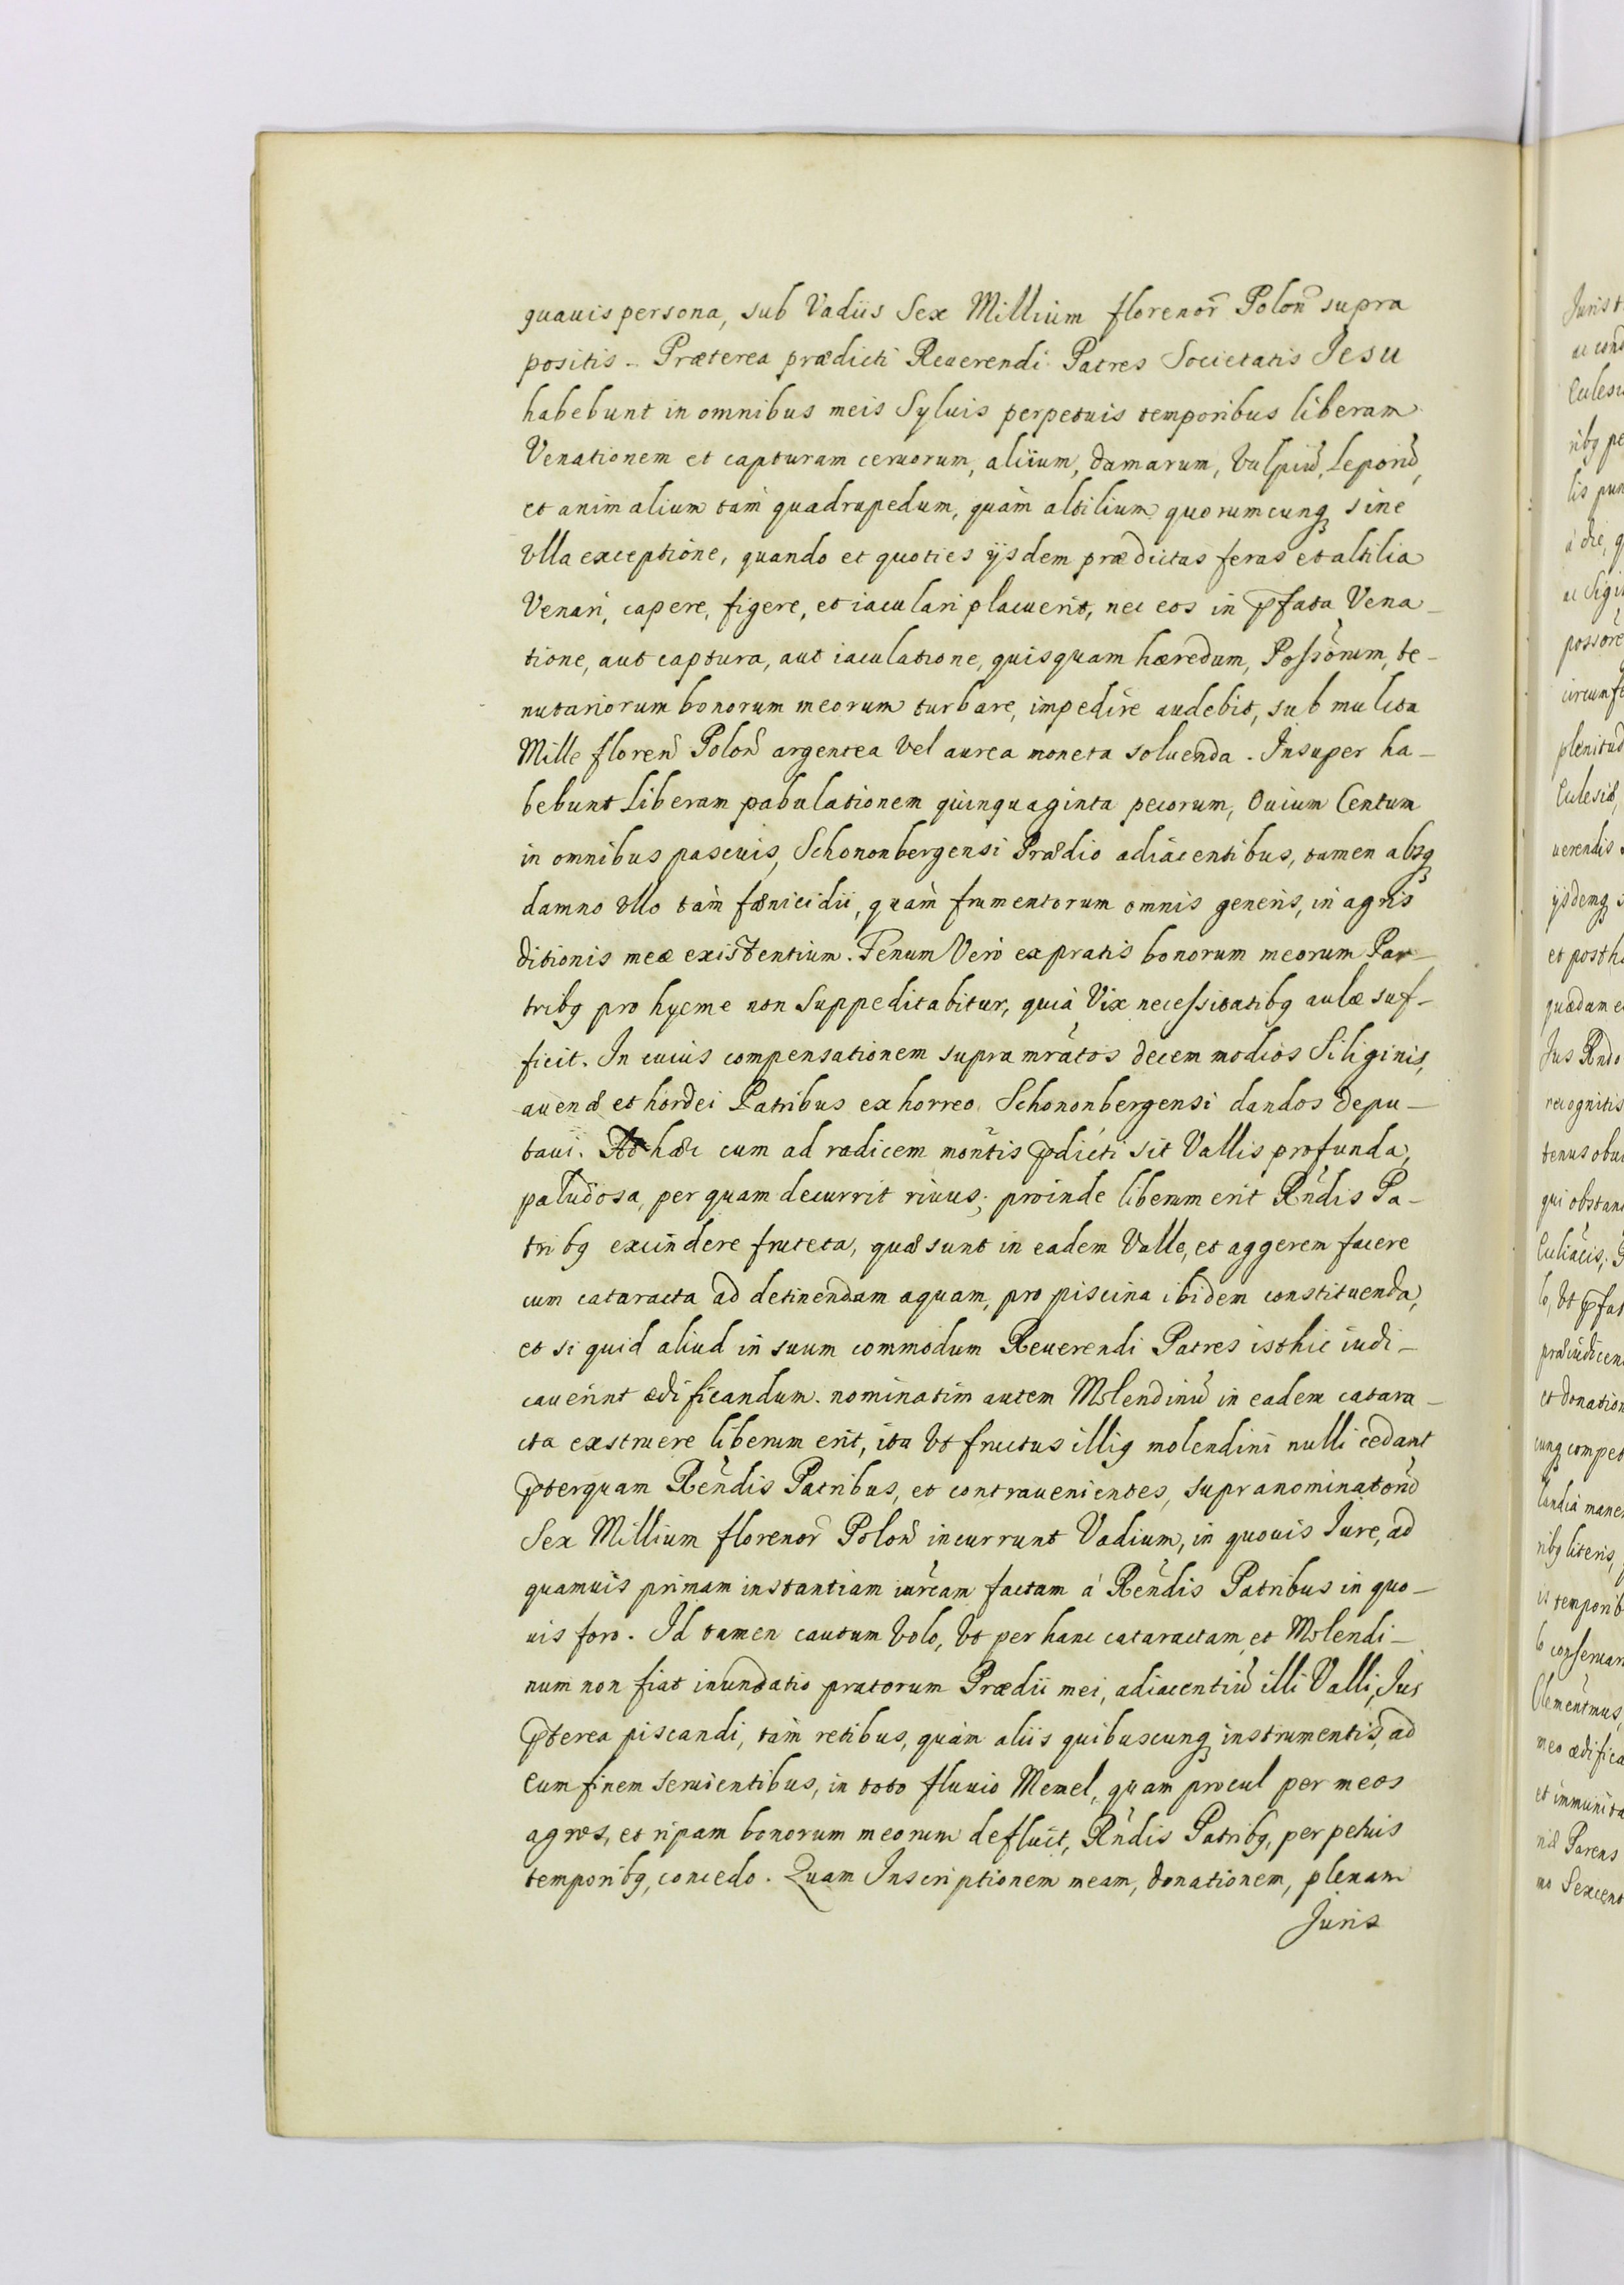 quauis persona, sub Vadiis Sex Millium florenor̃ Polon̄ supra
positis. Præterea prædicti Reuerendi Patres Societatis Jesu
habebunt in omnibus meis Syluis perpetuis temporibus liberam
Venationem et capturam ceruorum, alium, damarum, Vulpiū, Leporū,
et animalium tàm quadrupedum, quàm altilium quorumcunq sine
Vlla exceptione, quando et quoties ijsdem prædictas feras et altilia
Venari, capere, figere, et iaculari placuerit, nec eos in p̄fata Vena-
tione, aut captura, aut iaculatione, quisquam hæredum, Possõrum, te-
nutariorum bonorum meorum turbare, impedire audebit, sub mulcta
Mille floren̄ Polon̄ argentea Vel aurea moneta soluenda. Insuper ha-
bebunt Liberam pabulationem quinquaginta pecorum, Ouium Centum
in omnibus pascuis, Schononbergensi Prædio adiacentibus, tamen absq
damno Vllo tàm fænicidii, quàm frumentorum omnis generis, in agris
ditionis meæ existentium. Fenum Verò ex pratis bonorum meorum Pa-
tribq pro hyeme non Suppeditabitur, quià Vix necessitatibq aulæ suf-
ficit. In cuius compensationem supra mrãtos decem modios Siliginis,
auenæ et hordei Patribus ex horreo Schononbergensi dandos depu-
taui. Ad hæc cum ad radicem montis p̄dicti sit Vallis profunda,
paludosa, per quam decurrit riuus; proinde liberum erit Rñdis Pa-
tribq excindere fruteta, quæ sunt in eadem Valle, et aggerem facere
cum cataracta ad detinendam aquam, pro piscina ibidem constituenda,
et si quid aliud in suum commodum Reuerendi Patres isthic iudi-
cauerint ædificandum. nominatim autem Molendinū in eadem catara-
cta exstruere liberum erit, ita Vt fructus illiq molendini nulli cedant
p̄terquam Reñdis Patribus, et contrauenientes, supranominatorū
Sex Millium florenor̃ Polon̄ incurrunt Vadium, in quouis Iure, ad
quamuis primam instantiam iur̃cam factam á Reñdis Patribus in quo-
uis foro. Id tamen cautum Volo, Vt per hanc cataractam et Molendi-
num non fiat inundatio pratorum Prædii mei, adiacentiū illi Valli, Jus
p̄terea piscandi, tàm retibus, quàm aliis quibuscunq instrumentis, ad
Eum finem seruientibus, in toto fluuio Memel, quam procul per meos
agros, et ripam bonorum meorum defluit, Rñdis Patribq, perpetuis
temporibq, concedo. Quam Inscriptionem meam, donationem, plenam
Juris